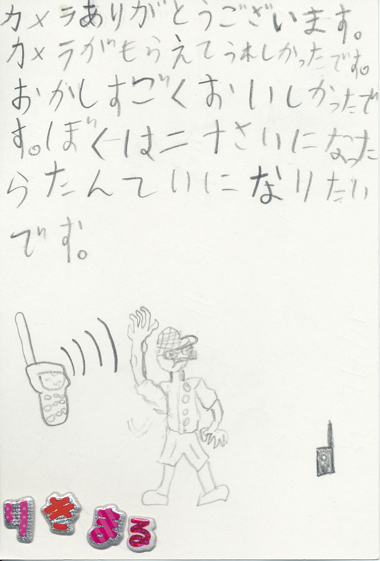 カメラありがとうございます。
カメラがもらえてうれしかったです。
おかしすごくおいしかったで
す。ぼくは二十さいになった
らたんていになりたい
です。
りきまる